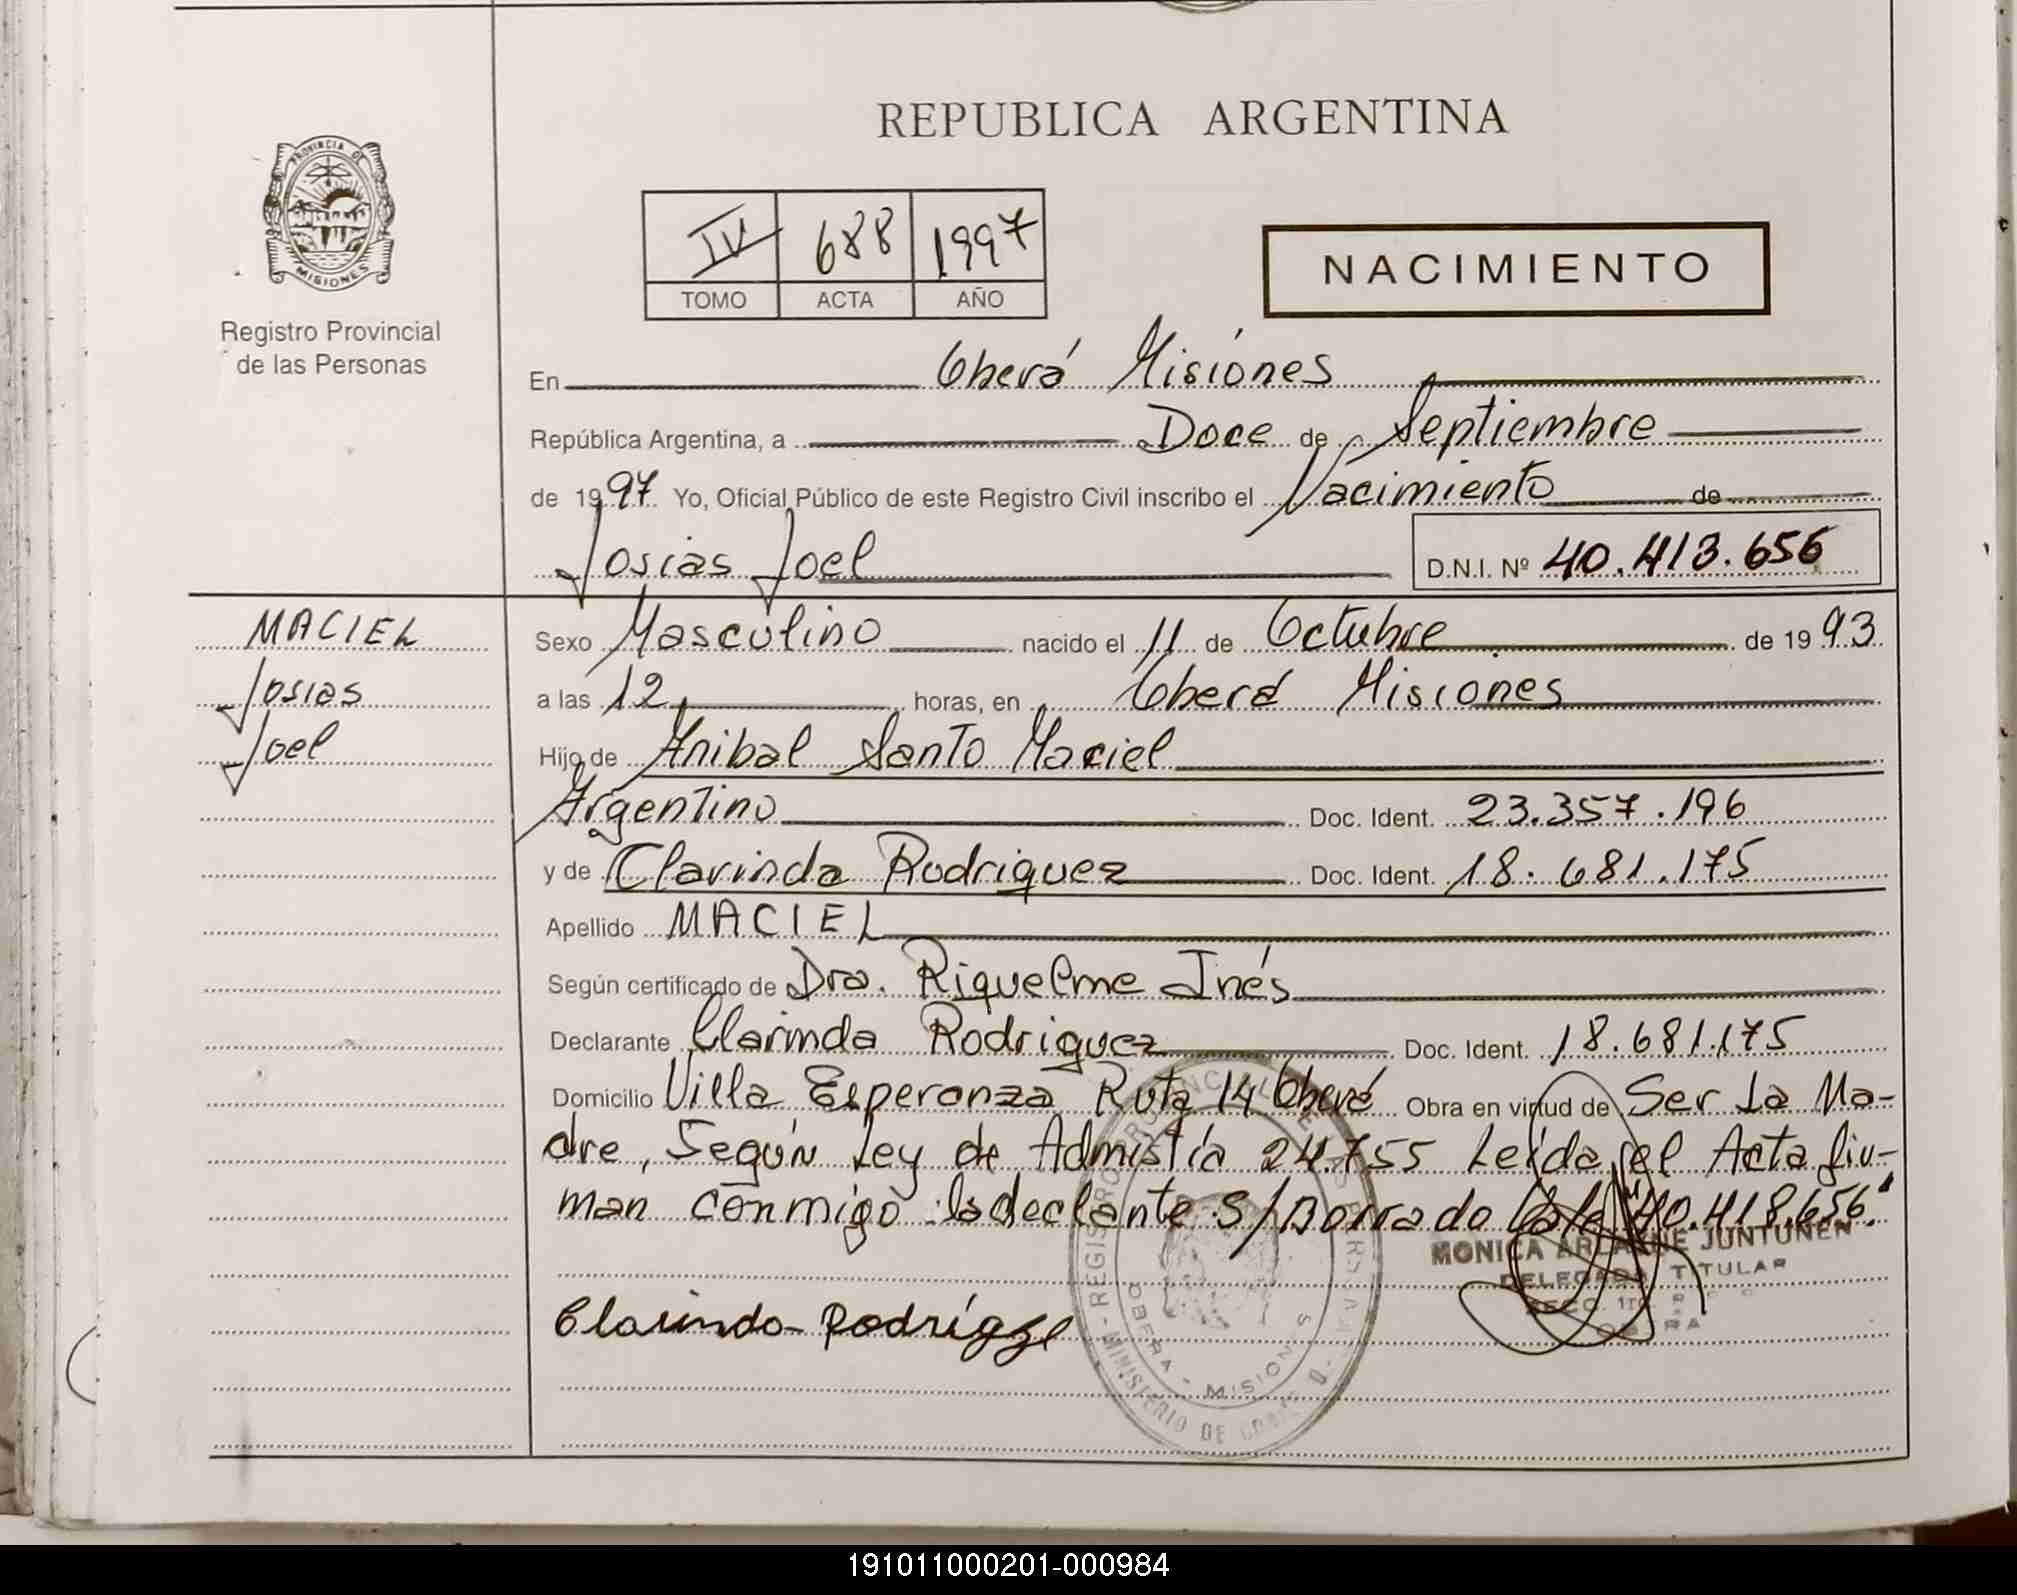 REPUBLICA ARGENTINA
PROVINCIA DE
MISIONES
Registro Provincial
de las Personas
IV 688 1997
TOMO ACTA AÑO
NACIMIENTO
En Oberá Misiones
República Argentina, a Doce de Septiembre
de 1997 Yo, Oficial Público de este Registro Civil inscribo el Nacimiento de
Josias Joel D.N.I. Nº 40.413.656
MACIEL
Josias
Joel
Sexo Masculino nacido el 11 de Octubre de 1993
a las 12 horas, en Oberá Misiones
Hijo de Anibal Santo Maciel
Argentino Doc. Ident. 23.357.196
y de Clarinda Rodriguez Doc. Ident. 18.681.175
Apellido MACIEL
Según certificado de Dra. Riquelme Inés
Declarante Clarinda Rodriguez Doc. Ident. 18.681.175
Domicilio Villa Esperanza Ruta 14 Oberá Obra en virtud de Ser La Ma-
dre, Según Ley de Admistía 24.755 Leída el Acta fir-
man conmigo la declante S/Borrado Vale "40.418.656"
MONICA JUNTUNEN
DELEGADA TITULAR
Clarinda Rodrigez
OBERA - MISIONES
MINISTERIO DE
191011000201-000984